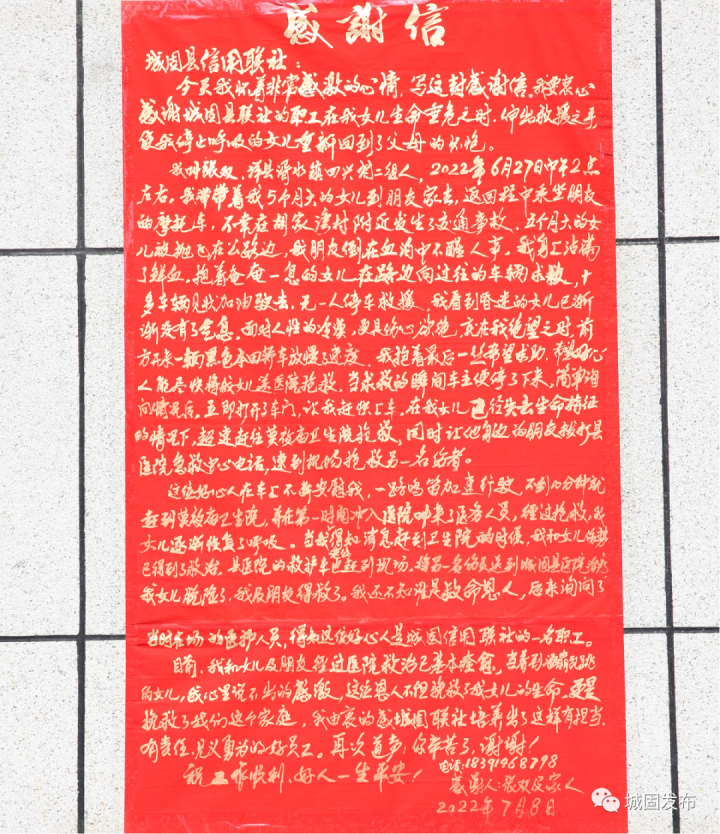 感謝信
城固县信用联社：
今天我怀着非常感激的心情，写这封感谢信，我要衷心
感谢城固县联社的职工在我女儿生命垂危之时，伸出救援之手，
使我停止呼吸的女儿重新回到了父母的怀抱。
我叫张双，洋县谢村镇四兴村二组人，2022年6月27日中午2点
左右，我带着我5个月大的女儿到朋友家去，返回程中乘坐朋友
的摩托车，不幸在胡家湾村附近发生了交通事故，五个月大的女
儿被抛飞在公路边，我朋友倒在血泊中不醒人事。我身上沾满
了鲜血，抱着奄奄一息的女儿在路边向过往的车辆求救，十
多车辆见状加油驶去，无一人停车救援，我看到昏迷的女儿已渐
渐没有了气息，面对人性的冷漠，更具伤心欲绝，京在我绝望之时，前
方开来一辆黑色本田轿车放慢了速度，我抱着最后一丝希望求助，希望好心
人能尽快将我女儿送医院抢救，当求救的瞬间车主便停了下来，简单询
问情况后，立即打开了车门，让我赶快上车，在我女儿已经失去生命特征
的情况下，超速赶往莫爷庙卫生院抢救，同时让他身边的朋友拨打县
医院急救中心电话，速到现场抢救另一名伤者。
这位好心人在车上不断安慰我，一路鸣笛加速行驶，不到10分钟就
赶到莫爷庙卫生院，并在第一时间冲入医院叫来了医务人员，经过抢救，我
女儿逐渐恢复了呼吸。当我得知消息赶到卫生院的时候，我和女儿伤势
已得到了救治，县医院的救护车也赶到现场，将另一名伤员送到城固县医院治疗
我女儿脱险了，我及朋友得救了。我还不知谁是救命恩人，后来询问了
当时在场的医护人员，得知这位好心人是城固信用联社的一名职工。
目前，我和女儿及朋友经过医院救治已基本痊愈，当看到活蹦乱跳
的女儿，我心里说不出的感激，这位恩人不但挽救了我女儿的生命，更是
挽救了我们这个家庭，我由衷的感城固联社培养出了这样有担当
有责任、见义勇为的好员工。再次道声：你辛苦了，谢谢！
祝工作顺利，好人一生平安！
电话：18391968798
感谢人：张双及家人
2022年7月8日
城固发布